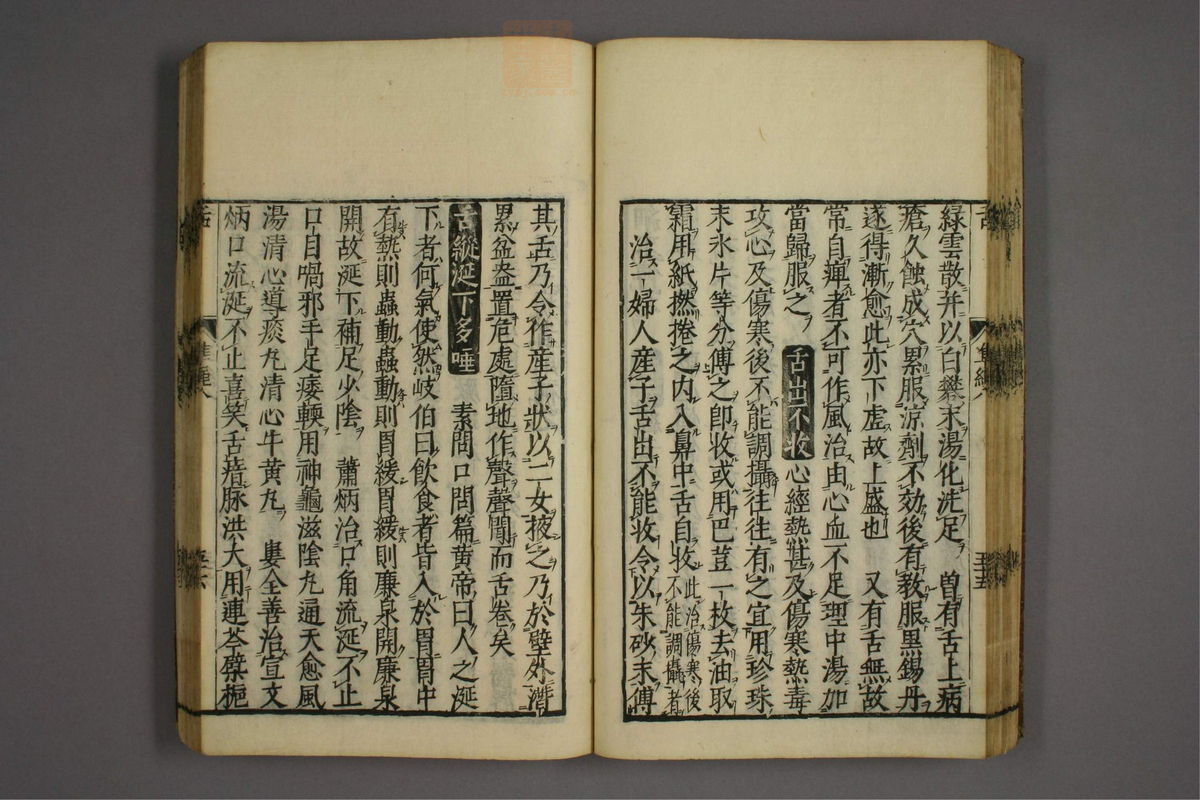 緑雲散并以白礬末湯化洗足　曽有舌上病
瘡久蝕成穴累服涼劑不効後有教服黒錫丹
遂得漸愈此亦下虚故上盛也　又有舌無故
常自痺者不可作風治由心血不足理中湯加
當歸服之　舌出不收　心經熱甚及傷寒熱毒
攻心及傷寒後不能調攝往往有之宜用珍珠
末氷片等分傅之即收或用巴荳一枚去油取
霜用紙撚捲之内入鼻中舌自收此治傷寒後不能調攝者
治一婦人産子舌出不能收令以朱砂末傅
其舌乃令作産子狀以二女掖之乃於壁外潜
累盆盎置危處隨地作聲聲聞而舌巻矣
舌縱涎下多唾　素問口問篇黄帝曰人之涎
下者何氣使然岐伯曰飲食者皆入於胃胃中
有熱則蟲動蟲動則胃緩胃緩則廉泉開廉泉
開故涎下補足少陰　蕭炳治口角流涎不止
口目喎邪手足痿軟用神龜滋陰丸通天愈風
湯清心導痰丸清心牛黄丸　婁全善治宣文
炳口流涎不止喜笑舌瘖脉洪大用連芩檗梔